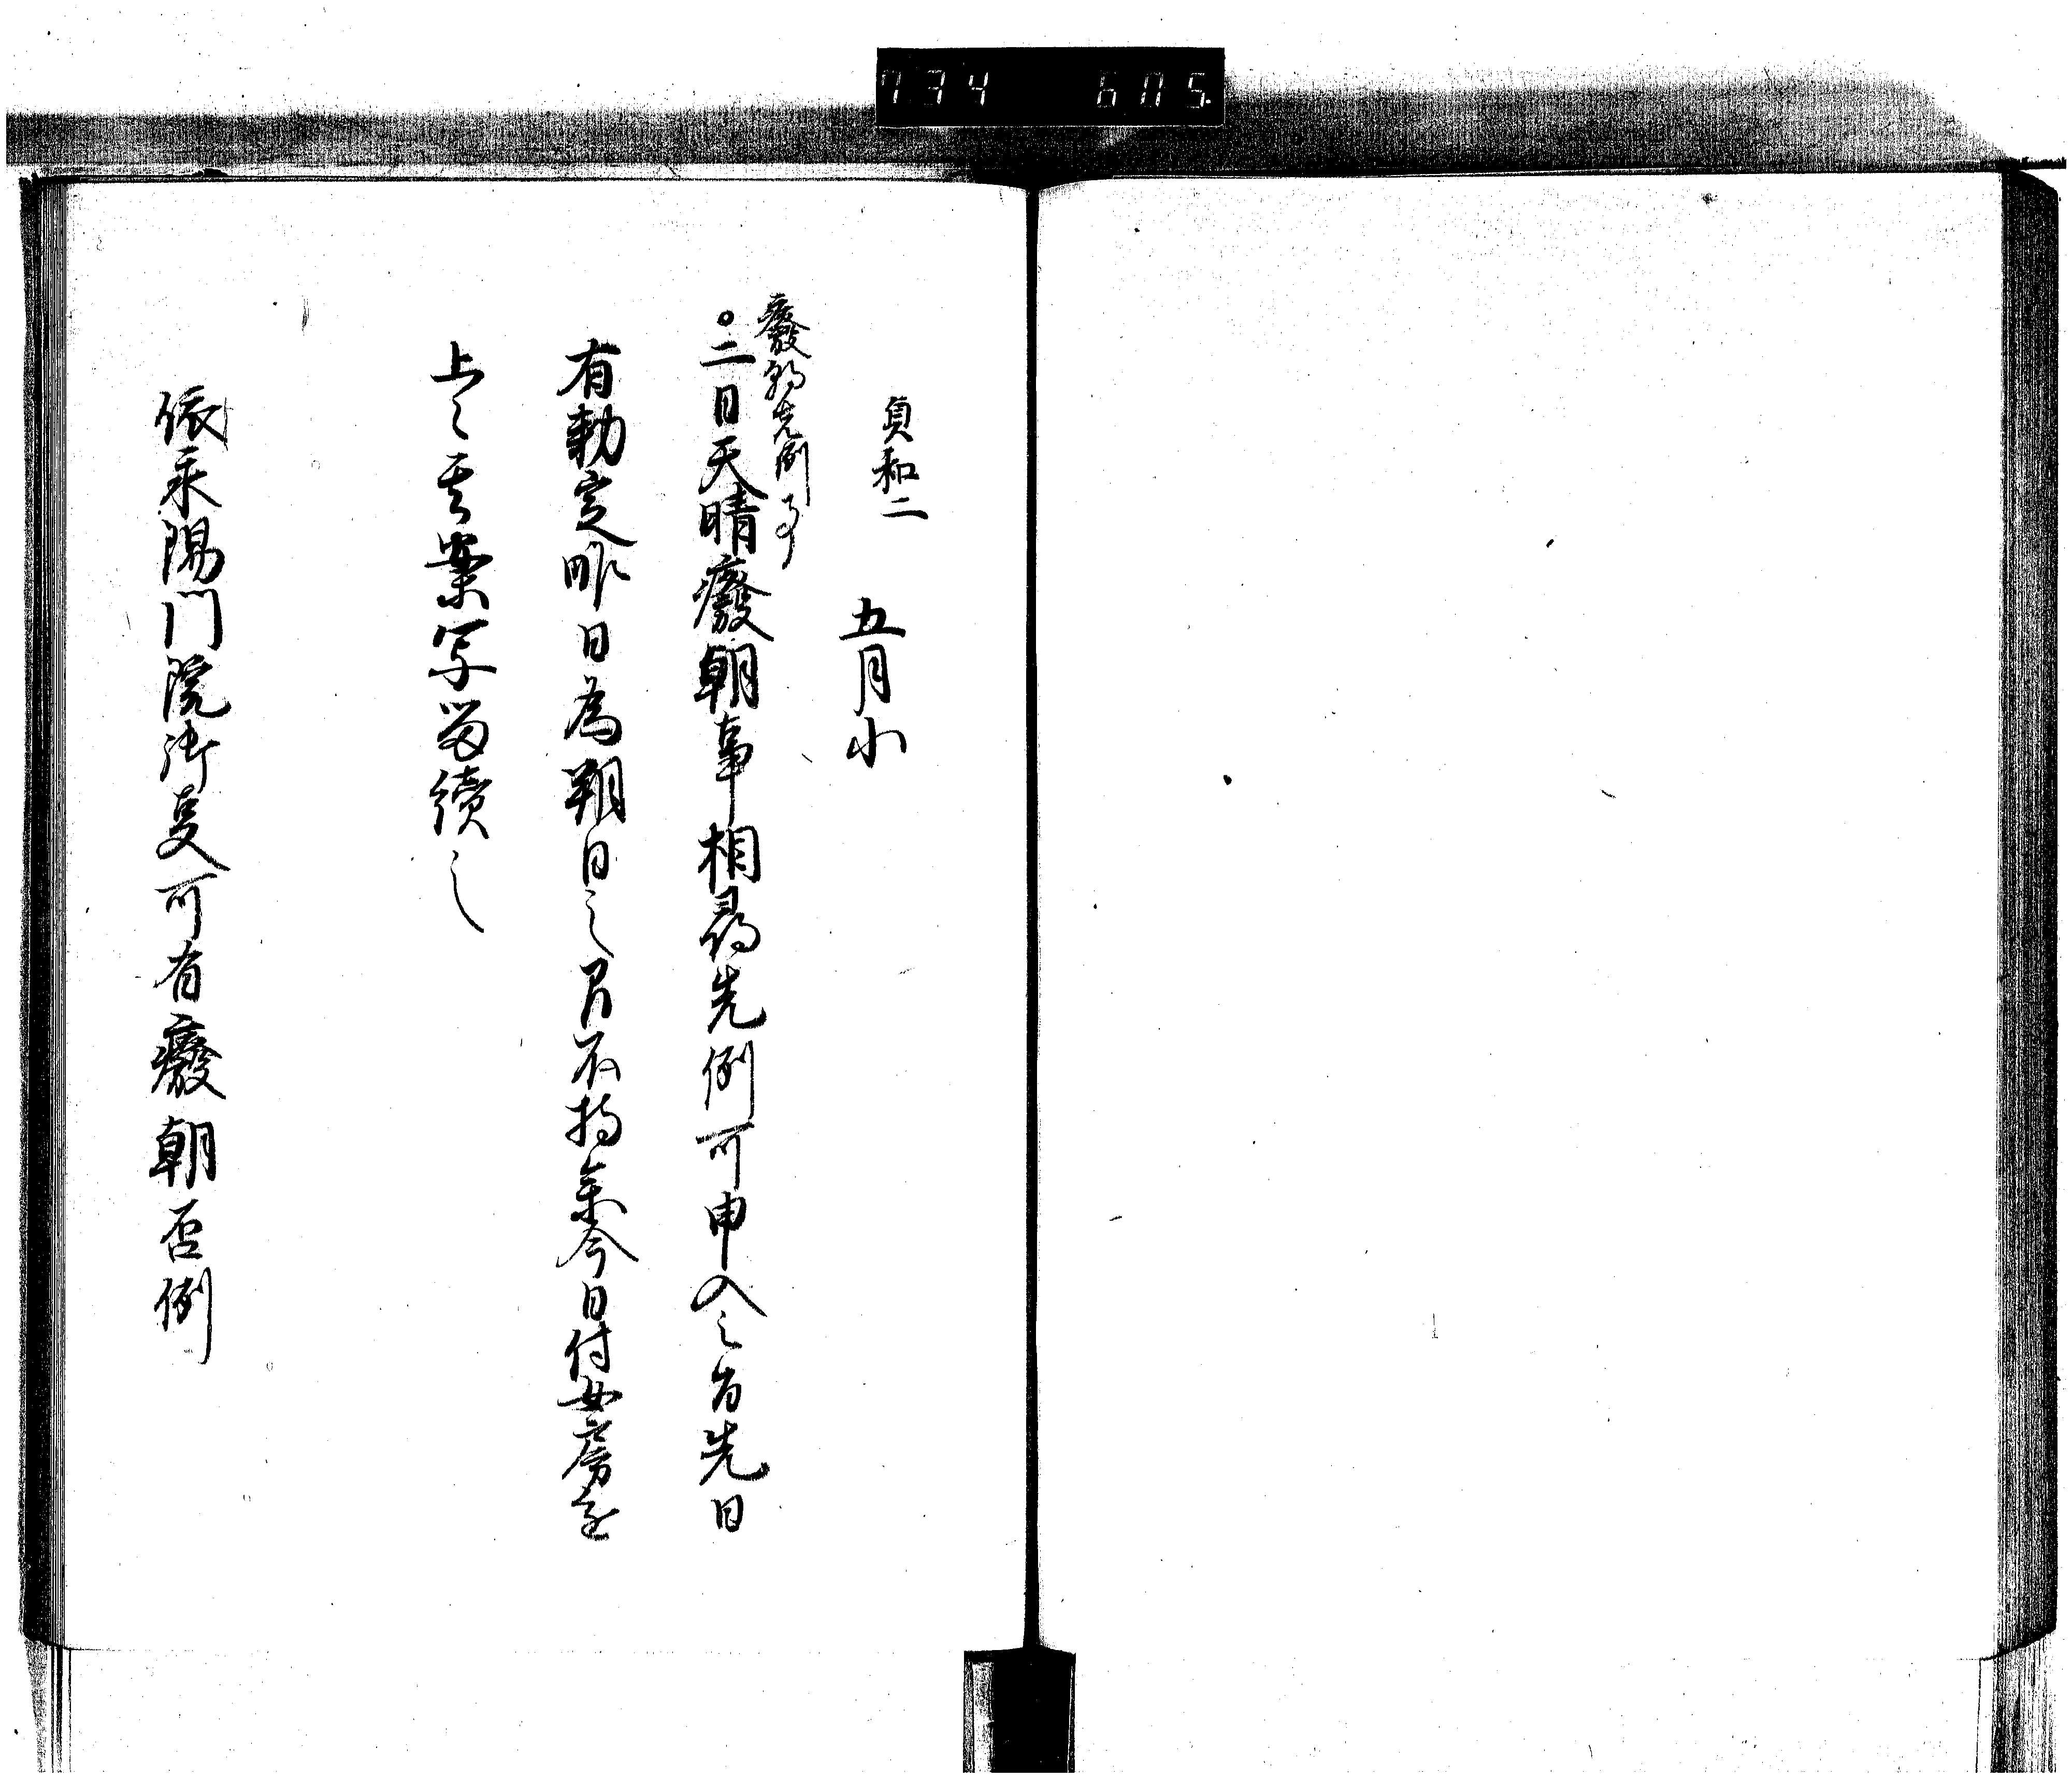 734 605.
貞和二
五月小
癈朝先例事
。二日天晴癈朝事相尋先例可申入之旨先日
有勅定昨日為朔日之間不持参今日付女房進
上之其案写留續之
依永陽門院御叓可有癈朝否例